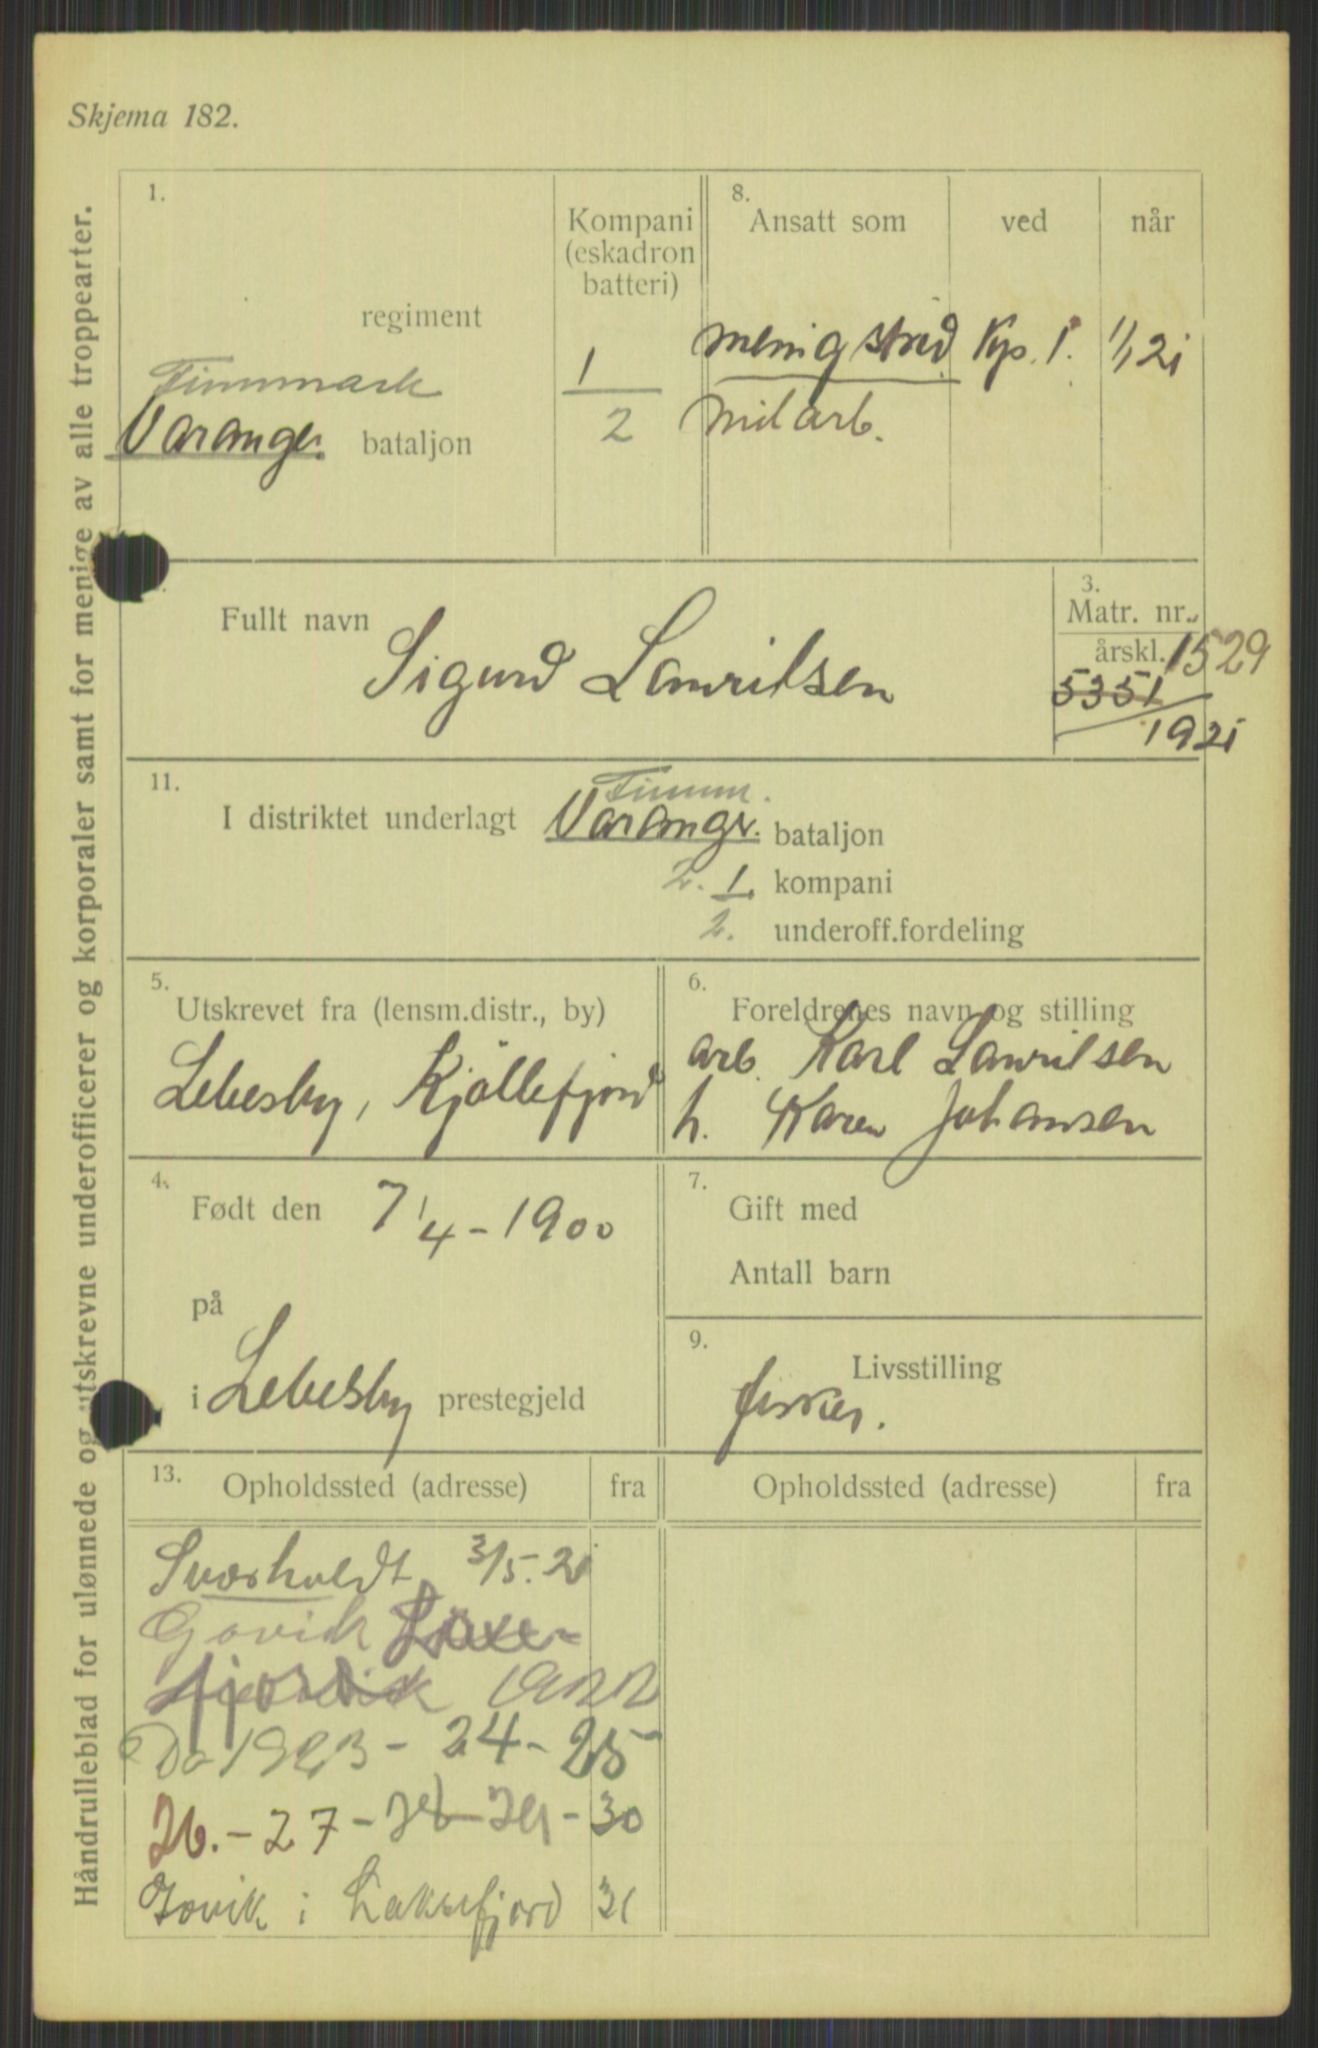 Skjema 182.
Håndrulleblad for ulønnede og utskrevne underofficerer og korporaler samt for menige av alle troppearter.
1.
regiment
Finnmark
Varanger. bataljon
Kompani
(eskadron
batteri)
1
2
8.
Ansatt som ved når
menig strid Kp. 1. 1/1 21
mil arb.
Fullt navn
Sigurd Lauritsen
3.
Matr. nr.
årskl. 1529
5351
1921
11.
Finnm.
I distriktet underlagt Varanger. bataljon
2. 1. kompani
2. underoff.fordeling
5.
Utskrevet fra (lensm.distr., by)
Lebesby, Kjöllefjord
6.
Foreldrenes navn og stilling
arb. Karl Lauritsen
h. Karen Johansen
4.
Født den 7/4 - 1900
på
i Lebesby prestegjeld
7.
Gift med
Antall barn
9.
Livsstilling
fisker.
13.
Opholdssted (adresse) fra Opholdssted (adresse) fra
Sværholdt 3/5. 21
Govik Laxe-
fjord 1922
Do 1923 - 24 - 25
26. - 27 - 28 - 29 - 30
Govik i Laksefjord 31